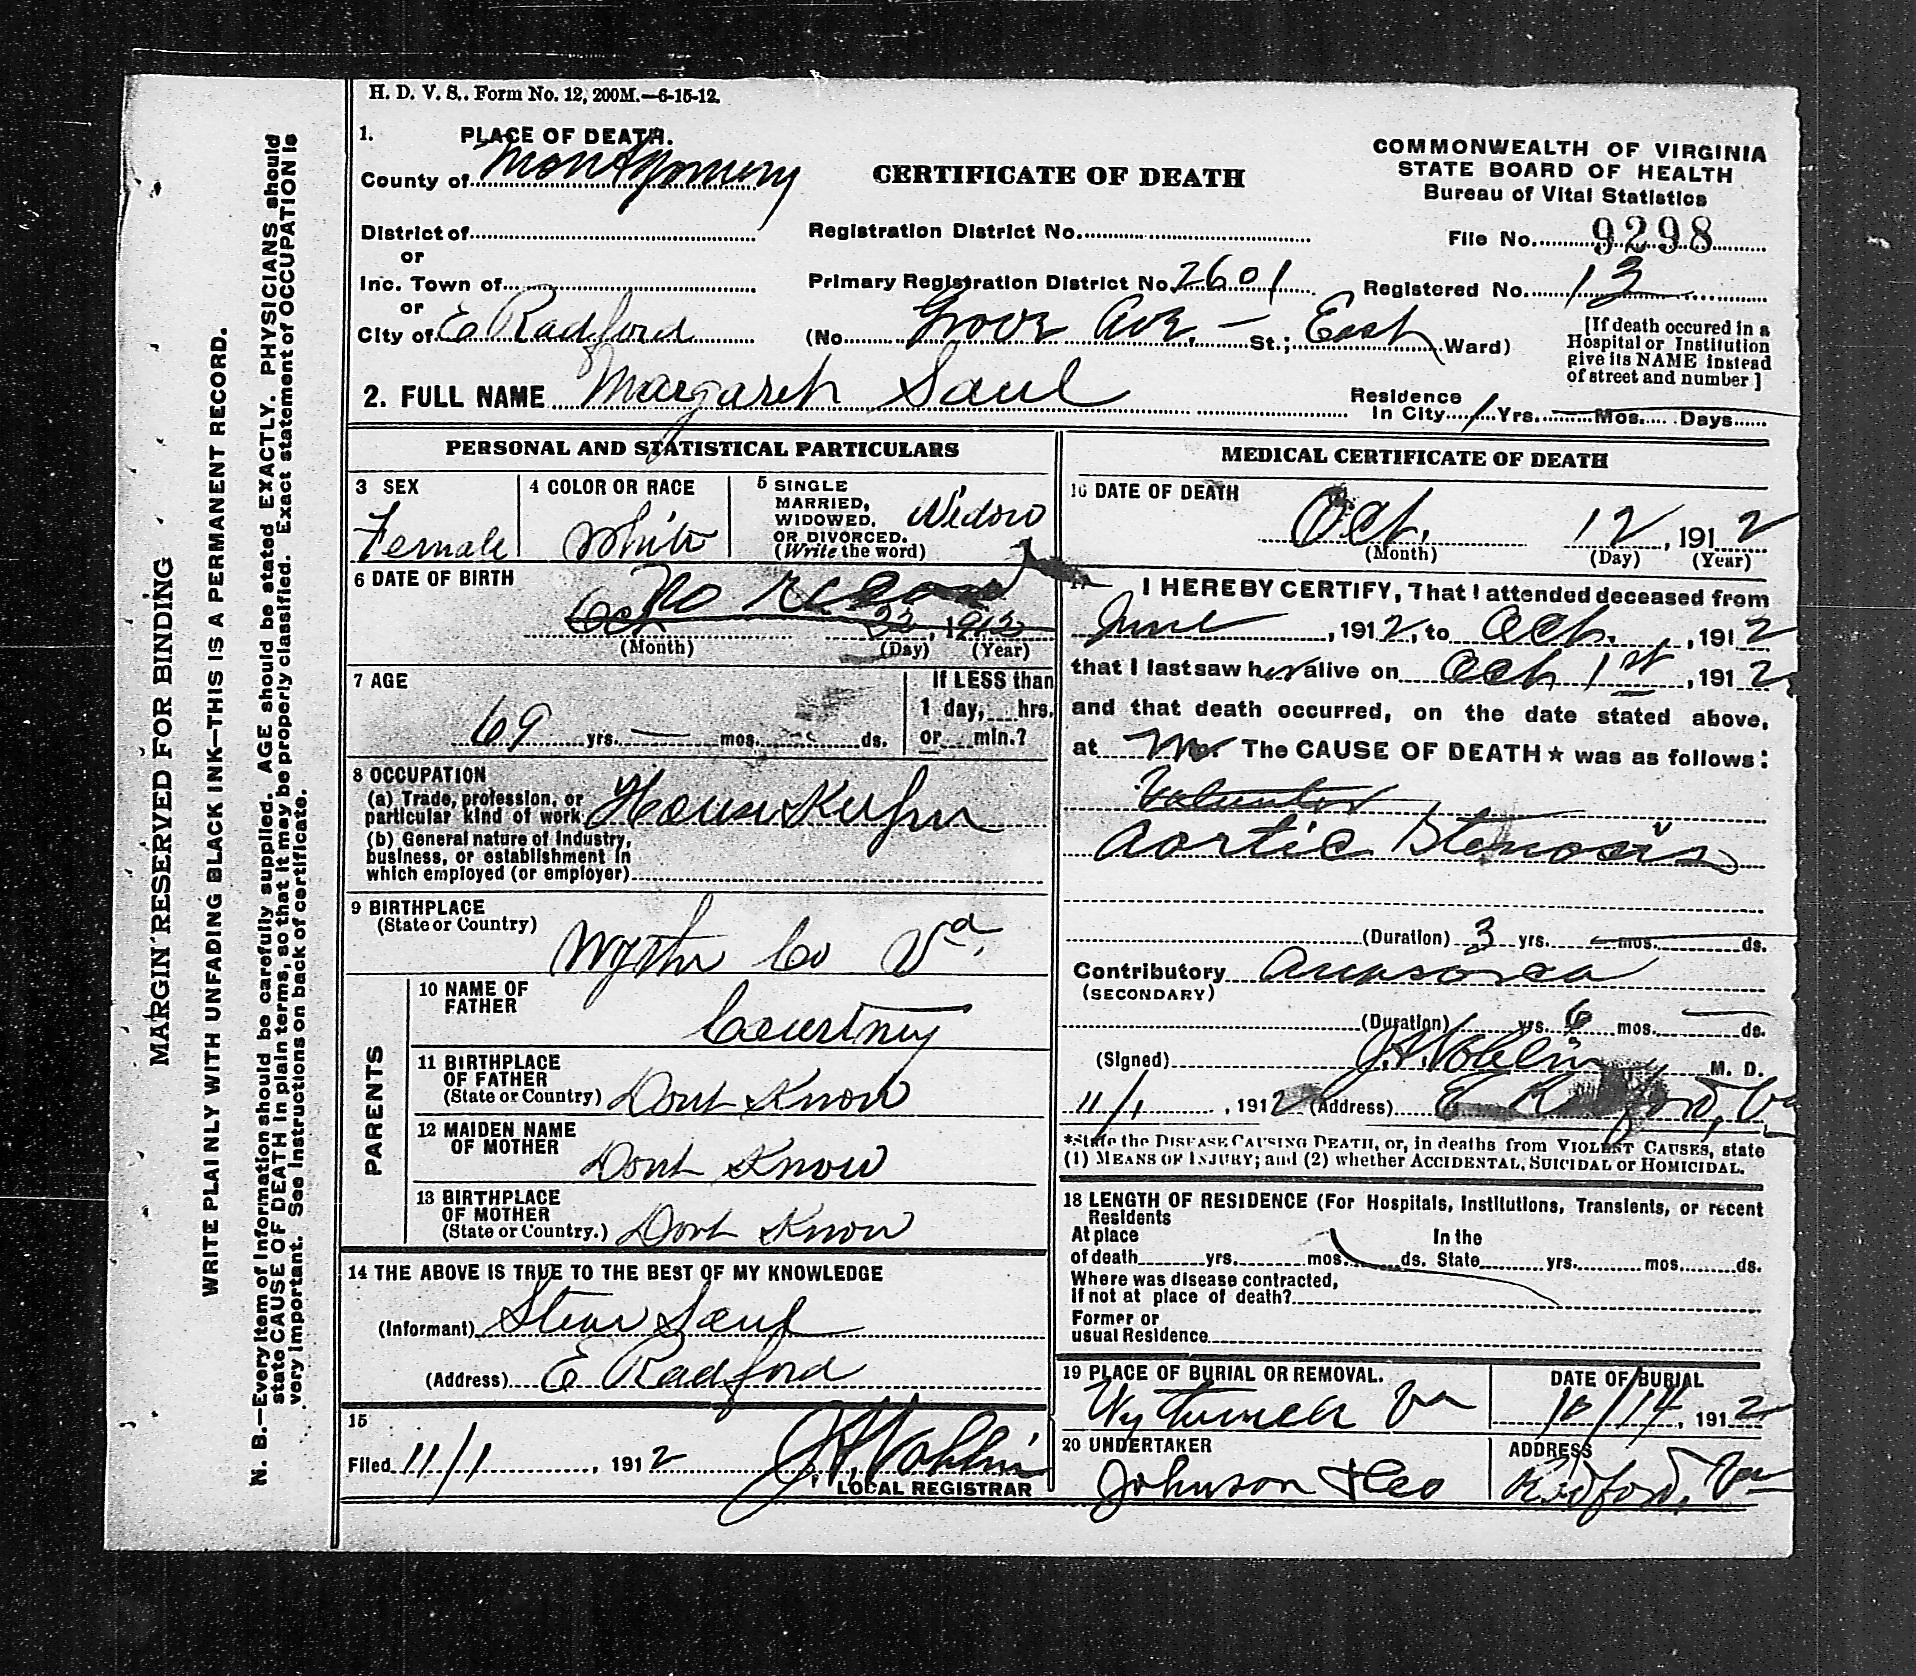 H. D. V. S.. Form No. 12, 200M.—6-15-12.
1. PLACE OF DEATH.
County of Montgomery
District of
or
Inc. Town of
or
City of E Radford
CERTIFICATE OF DEATH
Registration District No.
Primary Registration District No. 2601
(No. Grove Ave. — St.; East Ward)
COMMONWEALTH OF VIRGINIA
STATE BOARD OF HEALTH
Bureau of Vital Statistics
File No. 9298
Registered No. 13
[If death occured in a
Hospital or Institution
give its NAME instead
of street and number]
2. FULL NAME Margaret Saul
Residence
In City 1 Yrs. Mos. Days
PERSONAL AND STATISTICAL PARTICULARS
3 SEX
Female
4 COLOR OR RACE
White
5 SINGLE
MARRIED,
WIDOWED,
OR DIVORCED.
(Write the word)
Widow
6 DATE OF BIRTH
No record
Oct 1912
(Month) (Day) (Year)
7 AGE
69 yrs. — mos. ds.
If LESS than
1 day, hrs.
or min.?
8 OCCUPATION
(a) Trade, profession, or
particular kind of work Housekeeper
(b) General nature of Industry,
business, or establishment in
which employed (or employer)
9 BIRTHPLACE
(State or Country)
Wythe Co Va.
PARENTS
10 NAME OF
FATHER
Courtney
11 BIRTHPLACE
OF FATHER
(State or Country) Dont Know
12 MAIDEN NAME
OF MOTHER
Dont Know
13 BIRTHPLACE
OF MOTHER
(State or Country.) Dont Know
14 THE ABOVE IS TRUE TO THE BEST OF MY KNOWLEDGE
(Informant) Saul
(Address) E Radford
15
Filed 11/1, 1912
LOCAL REGISTRAR
MEDICAL CERTIFICATE OF DEATH
16 DATE OF DEATH
Oct. 12, 1912
(Month) (Day) (Year)
I HEREBY CERTIFY, That I attended deceased from
June, 1912, to Oct., 1912
that I last saw her alive on Oct 1st, 1912
and that death occurred, on the date stated above,
at M. The CAUSE OF DEATH★ was as follows:
Aortic Stenosis
(Duration) 3 yrs. mos. ds.
Contributory Anasarca
(SECONDARY)
(Duration) yrs. 6 mos. — ds.
(Signed) M. D.
11/1, 1912 (Address) E Radford, Va
*State the DISEASE CAUSING DEATH, or, in deaths from VIOLENT CAUSES, state
(1) MEANS OF INJURY; and (2) whether ACCIDENTAL, SUICIDAL or HOMICIDAL.
18 LENGTH OF RESIDENCE (For Hospitals, Institutions, Transients, or recent
Residents
At place In the
of death yrs. mos. ds. State yrs. mos. ds.
Where was disease contracted,
if not at place of death?
Former or
usual Residence
19 PLACE OF BURIAL OR REMOVAL.
Va
DATE OF BURIAL
10/14, 1912
20 UNDERTAKER
Johnson & Co
ADDRESS
Radford, Va
MARGIN RESERVED FOR BINDING
WRITE PLAINLY WITH UNFADING BLACK INK—THIS IS A PERMANENT RECORD.
N. B.—Every item of information should be carefully supplied. AGE should be stated EXACTLY. PHYSICIANS should
state CAUSE OF DEATH in plain terms, so that it may be properly classified. Exact statement of OCCUPATION is
very important. See instructions on back of certificate.